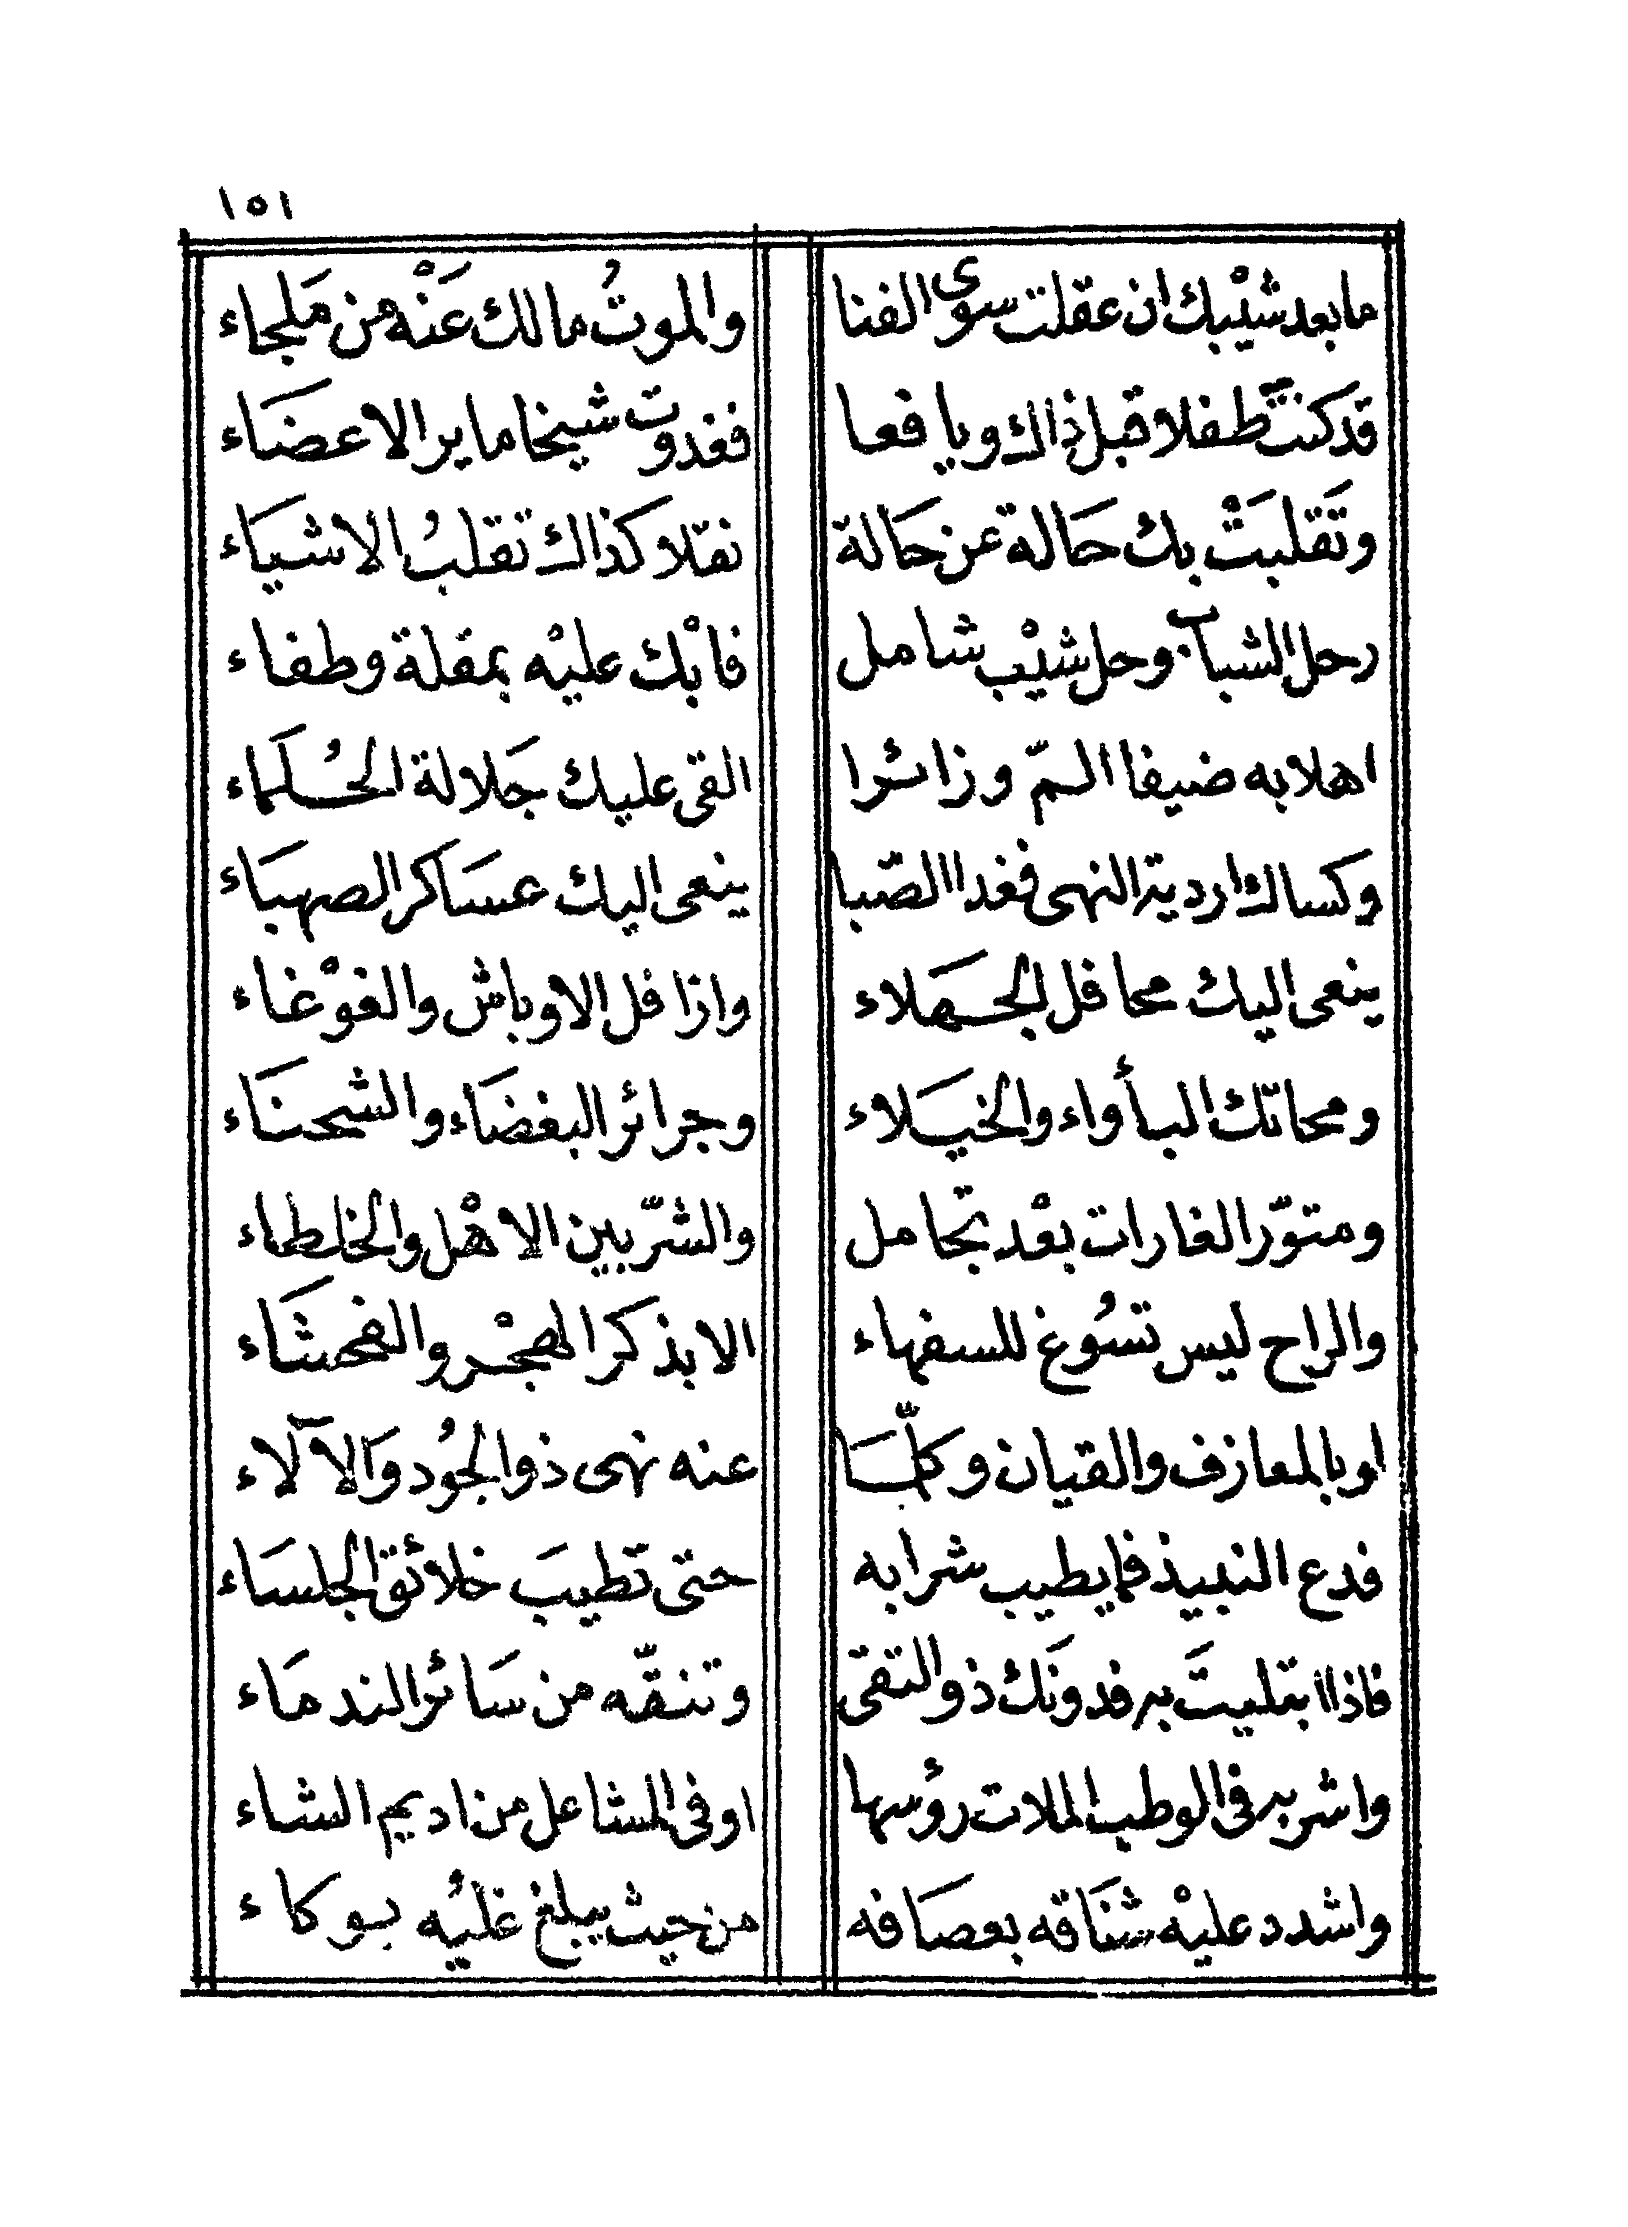 ١٥١
مابعد شيْبك ان عقلت سوى الفنا والموتُ مالك عَنْه من مَلجاء
قد كنتَّ طفلا قبل ذاك ويافعا فغدوت شيخا ماير الاعضَاء
وتَقلبتْ بك حَالة عن حَالة نقلا كذاك تقلبُ الاشيَاء
رحل الشباب وحل شيْب شامل فابْك عليْه بمقلة وطفاء
اهلا به ضيفا الـمّ وزائـرا القى عليك جَلالة الحُـكَماء
وكساك اردية النهى فغدا الصّبا ينعى اليك عسَاكر الصهبَاء
ينعى اليك محافل الجَـهلاء واذا فل الاوباش والغوْغاء
ومحاتّك البـأواء والخيَـلاء وجرائر البغضَاء والشحنَاء
ومتوّر الغارات بعْد تحَامل والشرّ بين الاهْل والخلطاء
والراح ليس تسُوغ للسفهاء الا بذكر الهجْـر والفحشَاء
او بالمعازف والقيان وكلّـمَا عنه نهى ذو الجُود وَالآلاء
فدع النبيذ فما يطيب شرابه حتى تطيبَ خلائق الجلسَاء
فاذا ابتليتَ به فدونَك ذو التقى وتنقّـه من سَائر الندمَاء
واشربه فى الوطب الملات رؤسها اوفى المشاعل من اديم الشاء
واشدد عليْه شنَاقه بعصَافه من حيث يبلغ غليُه بـوكاء